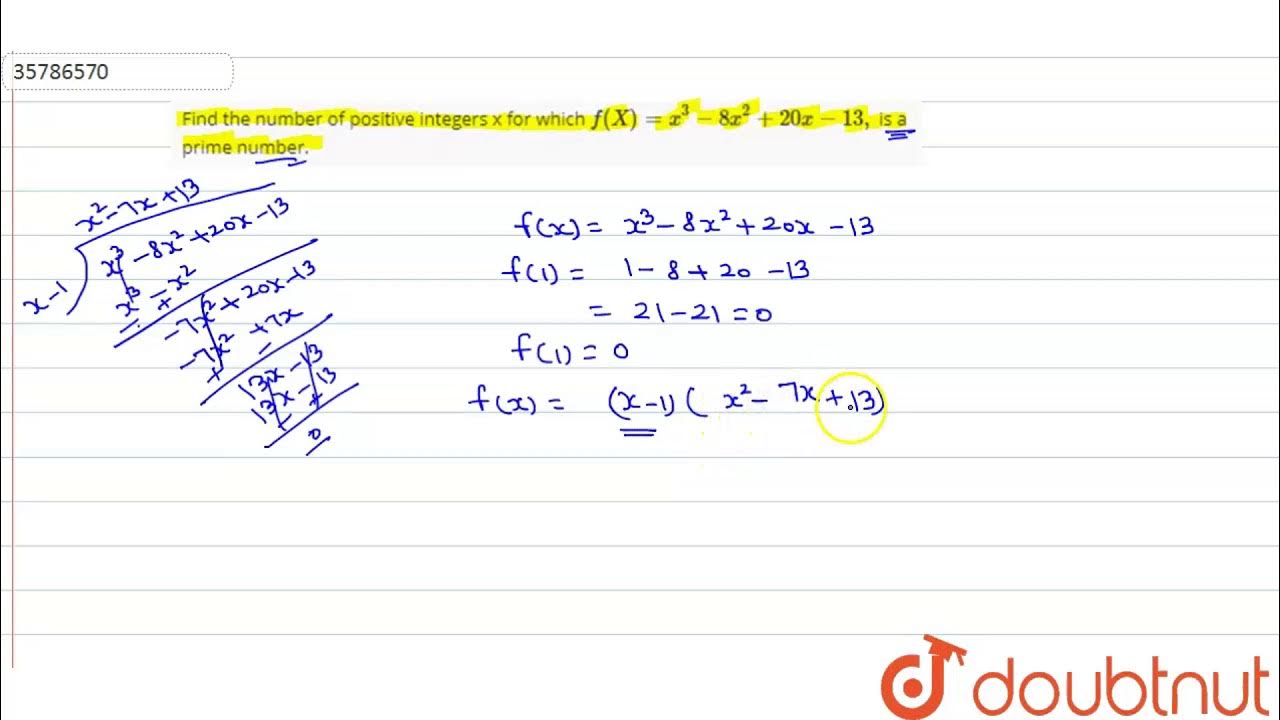 35786570
Find the number of positive integers x for which f(X) = x³ − 8x² + 20x − 13, is a
prime number.
x² − 7x + 13
x − 1
x³ − 8x² + 20x − 13
x³ − x²
− +
− 7x² + 20x − 13
− 7x² + 7x
+ −
13x − 13
13x − 13
− +
0
f(x) = x³ − 8x² + 20x − 13
f(1) = 1 − 8 + 20 − 13
= 21 − 21 = 0
f(1) = 0
f(x) = (x − 1) ( x² − 7x + 13)
doubtnut